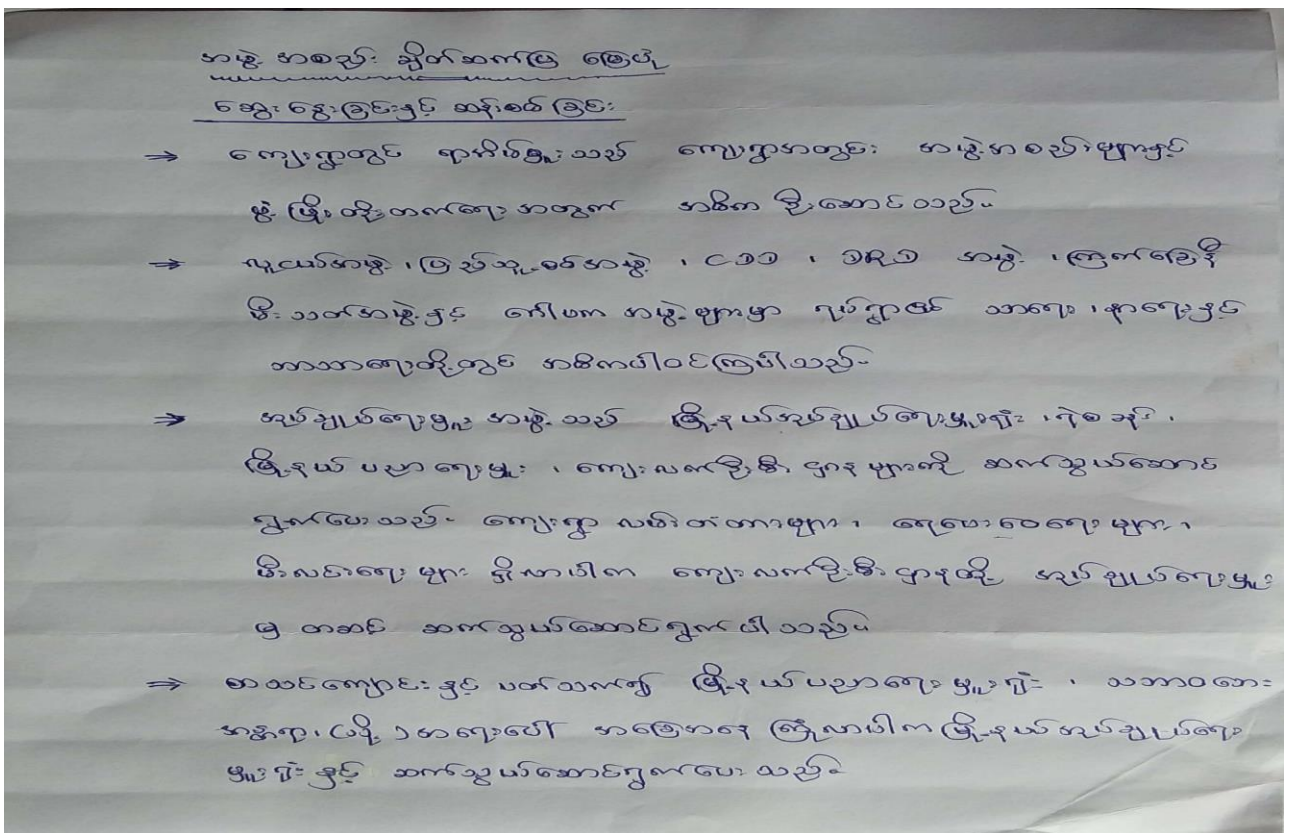 အဖွဲ့ အစည်း ချိတ်ဆက်ပြ မြေပုံ
ဆွေးနွေးခြင်းနှင့် ဆန်းစစ်ခြင်း
⇒ ကျေးရွာတွင် ရာအိမ်မှူးသည် ကျေးရွာအတွင်း အဖွဲ့အစည်းများနှင့်
ဖွံ့ဖြိုးတိုးတက်ရေးအတွက် အဓိကဦးဆောင်သည်။
⇒ လူငယ်အဖွဲ့၊ ပြည်သူ့စစ်အဖွဲ့၊ CDD ၊ DRD အဖွဲ့၊ ကြက်ခြေနီ
မီးသတ်အဖွဲ့နှင့် ဂေါပက အဖွဲ့များမှာ ရပ်ရွာ၏ သာရေး၊ နာရေးနှင့်
ဘာသာရေးတို့တွင် အဓိကပါဝင်ကြပါသည်။
⇒ အုပ်ချုပ်ရေးမှူး အဖွဲ့သည် မြို့နယ်အုပ်ချုပ်ရေးမှူးရုံး၊ ရဲစခန်း၊
မြို့နယ်ပညာရေးမှူး၊ ကျေးလက်ဦးစီးဌာနများကို ဆက်သွယ်ဆောင်
ရွက်ပေးသည်။ ကျေးရွာ လမ်းတံတားများ၊ ရေပေးဝေရေးများ၊
မီးလင်းရေးများ ရှိလာပါက ကျေးလက်ဦးစီးဌာနတို့ အုပ်ချုပ်ရေးမှူး
မှ တဆင့် ဆက်သွယ်ဆောင်ရွက်ပါသည်။
⇒ စာသင်ကျောင်းနှင့် ပတ်သက်၍ မြို့နယ်ပညာရေးမှူးရုံး၊ သဘာဝဘေး
အန္တရာယ် (သို့) အရေးပေါ် အခြေအနေ ကြုံလာပါက မြို့နယ်အုပ်ချုပ်ရေး
မှူးရုံးနှင့် ဆက်သွယ်ဆောင်ရွက်ပေးသည်။